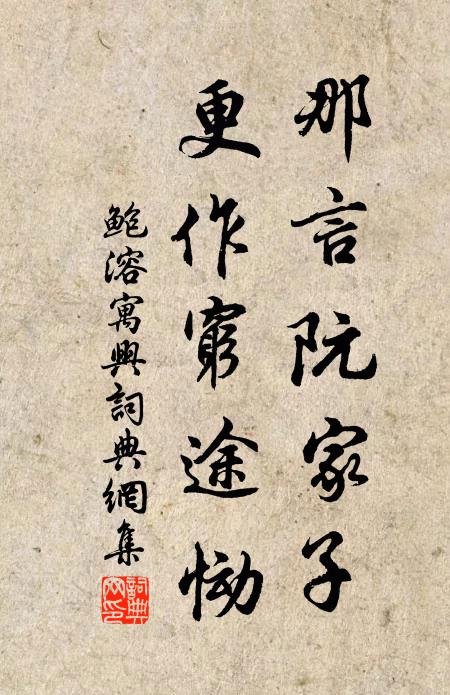 那言阮家子
更作窮途慟
鮑溶寓興詞典網集
詞典網印